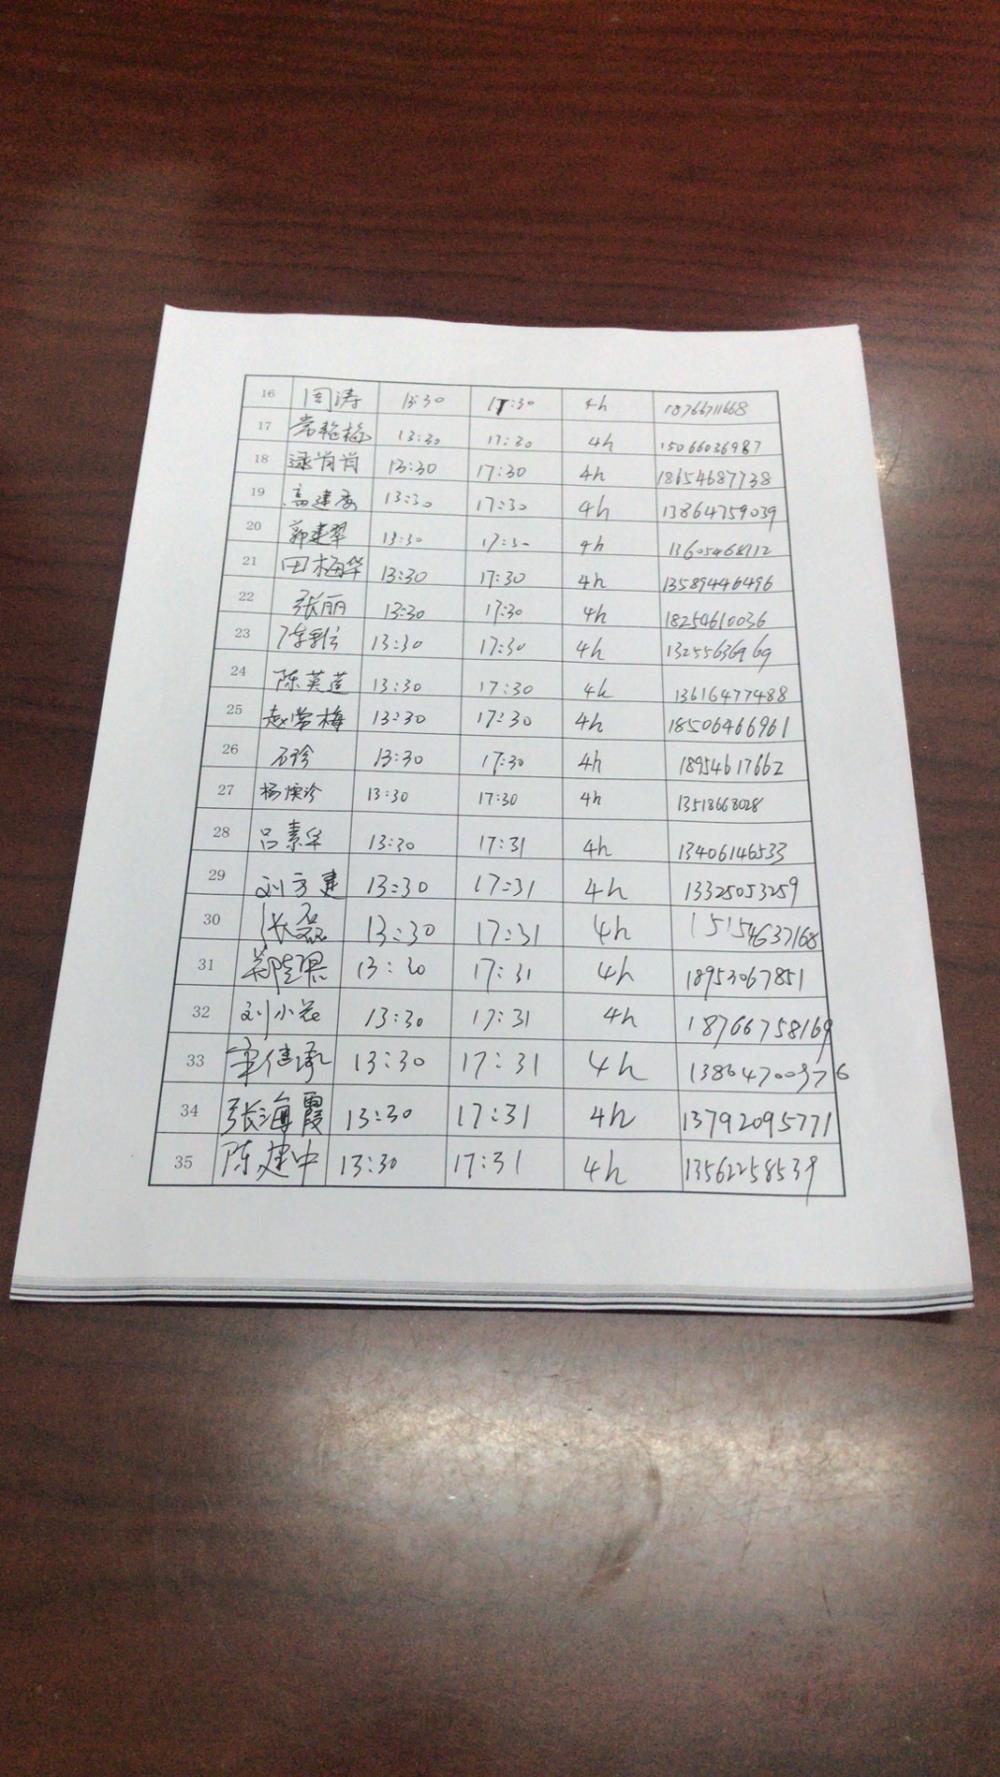 16 周涛 13:30 17:30 4h 18766711668
17 常艳梅 13:30 17:30 4h 15066036987
18 逯肖肖 13:30 17:30 4h 18654687738
19 高建 13:30 17:30 4h 13864759039
20 郭建翠 13:30 17:30 4h 13605468112
21 田梅华 13:30 17:30 4h 13589446496
22 张丽 13:30 17:30 4h 18254610036
23 13:30 17:30 4h 13255636969
24 陈英莲 13:30 17:30 4h 13616477488
25 赵常梅 13:30 17:30 4h 18506466961
26 石珍 13:30 17:30 4h 18954617662
27 杨焕珍 13:30 17:30 4h 13518668028
28 吕素华 13:30 17:31 4h 13406146533
29 刘方建 13:30 17:31 4h 13325053259
30 张磊 13:30 17:31 4h 15154637168
31 13:30 17:31 4h 18953067851
32 刘小花 13:30 17:31 4h 18766758169
33 宋继承 13:30 17:31 4h 13864700376
34 张海霞 13:30 17:31 4h 13792095771
35 陈建中 13:30 17:31 4h 13562258539